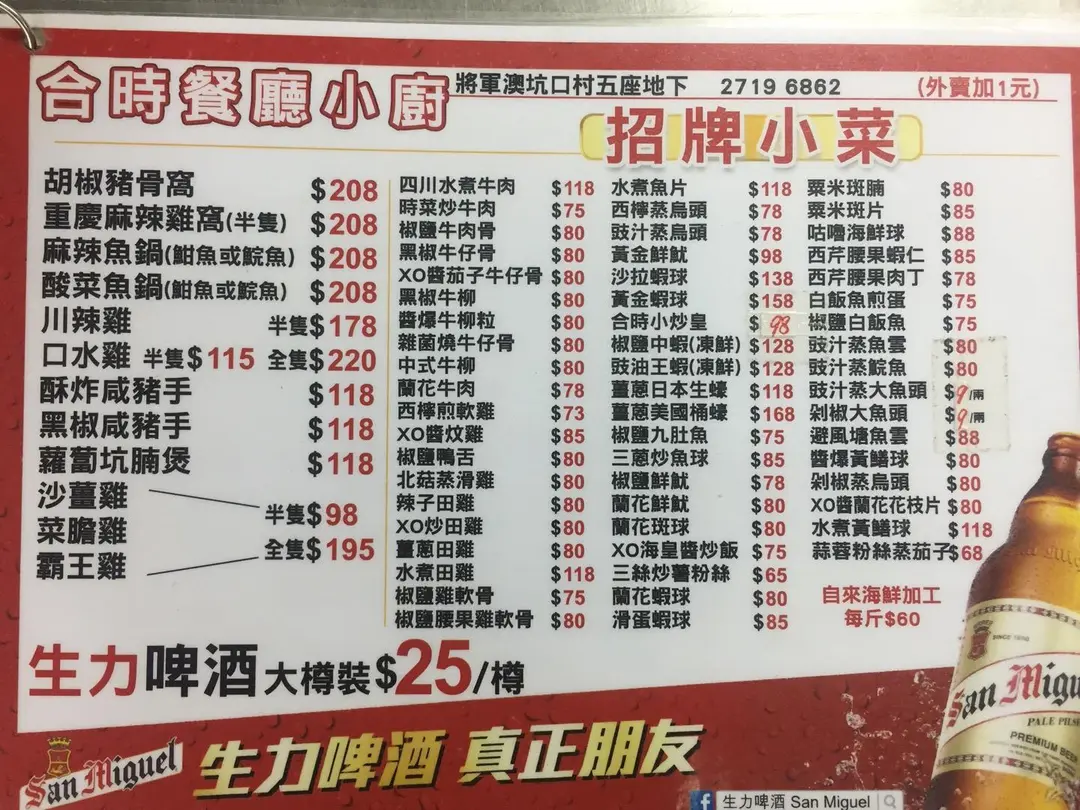 合時餐廳小廚
將軍澳坑口村五座地下 2719 6862 (外賣加1元)
招牌小菜
胡椒豬骨窩 $208
重慶麻辣雞窩(半隻) $208
麻辣魚鍋(鮒魚或鯇魚) $208
酸菜魚鍋(鮒魚或鯇魚) $208
川辣雞 半隻$178
口水雞 半隻$115 全隻$220
酥炸咸豬手 $118
黑椒咸豬手 $118
蘿蔔坑腩煲 $118
沙薑雞
菜膽雞
霸王雞
半隻$98
全隻$195
四川水煮牛肉 $118
時菜炒牛肉 $75
椒鹽牛肉骨 $80
黑椒牛仔骨 $80
XO醬茄子牛仔骨 $80
黑椒牛柳 $80
醬爆牛柳粒 $80
雜菌燒牛仔骨 $80
中式牛柳 $80
蘭花牛肉 $78
西檸煎軟雞 $73
XO醬炆雞 $85
椒鹽鴨舌 $80
北菇蒸滑雞 $80
辣子田雞 $80
XO炒田雞 $80
薑蔥田雞 $80
水煮田雞 $118
椒鹽雞軟骨 $75
椒鹽腰果雞軟骨 $80
水煮魚片 $118
西檸蒸烏頭 $78
豉汁蒸烏頭 $78
黃金鮮魷 $98
沙拉蝦球 $138
黃金蝦球 $158
合時小炒皇 $98
椒鹽中蝦(凍鮮) $128
豉油王蝦(凍鮮) $128
薑蔥日本生蠔 $118
薑蔥美國桶蠔 $168
椒鹽九肚魚 $75
三蔥炒魚球 $85
椒鹽鮮魷 $78
蘭花鮮魷 $80
蘭花斑球 $80
XO海皇醬炒飯 $75
三絲炒薯粉絲 $65
蘭花蝦球 $80
滑蛋蝦球 $85
粟米斑腩 $80
粟米斑片 $85
咕嚕海鮮球 $88
西芹腰果蝦仁 $85
西芹腰果肉丁 $78
白飯魚煎蛋 $75
椒鹽白飯魚 $75
豉汁蒸魚雲 $80
豉汁蒸鯇魚 $80
豉汁蒸大魚頭 $9/兩
剁椒大魚頭 $9/兩
避風塘魚雲 $88
醬爆黃鱔球 $80
剁椒蒸烏頭 $80
XO醬蘭花花枝片 $80
水煮黃鱔球 $118
蒜蓉粉絲蒸茄子$68
自來海鮮加工
每斤$60
生力啤酒 大樽裝$25/樽
San Miguel
生力啤酒 真正朋友
f 生力啤酒 San Miguel
SINCE 1890
San Migu
PALE PILS
PREMIUM BEE